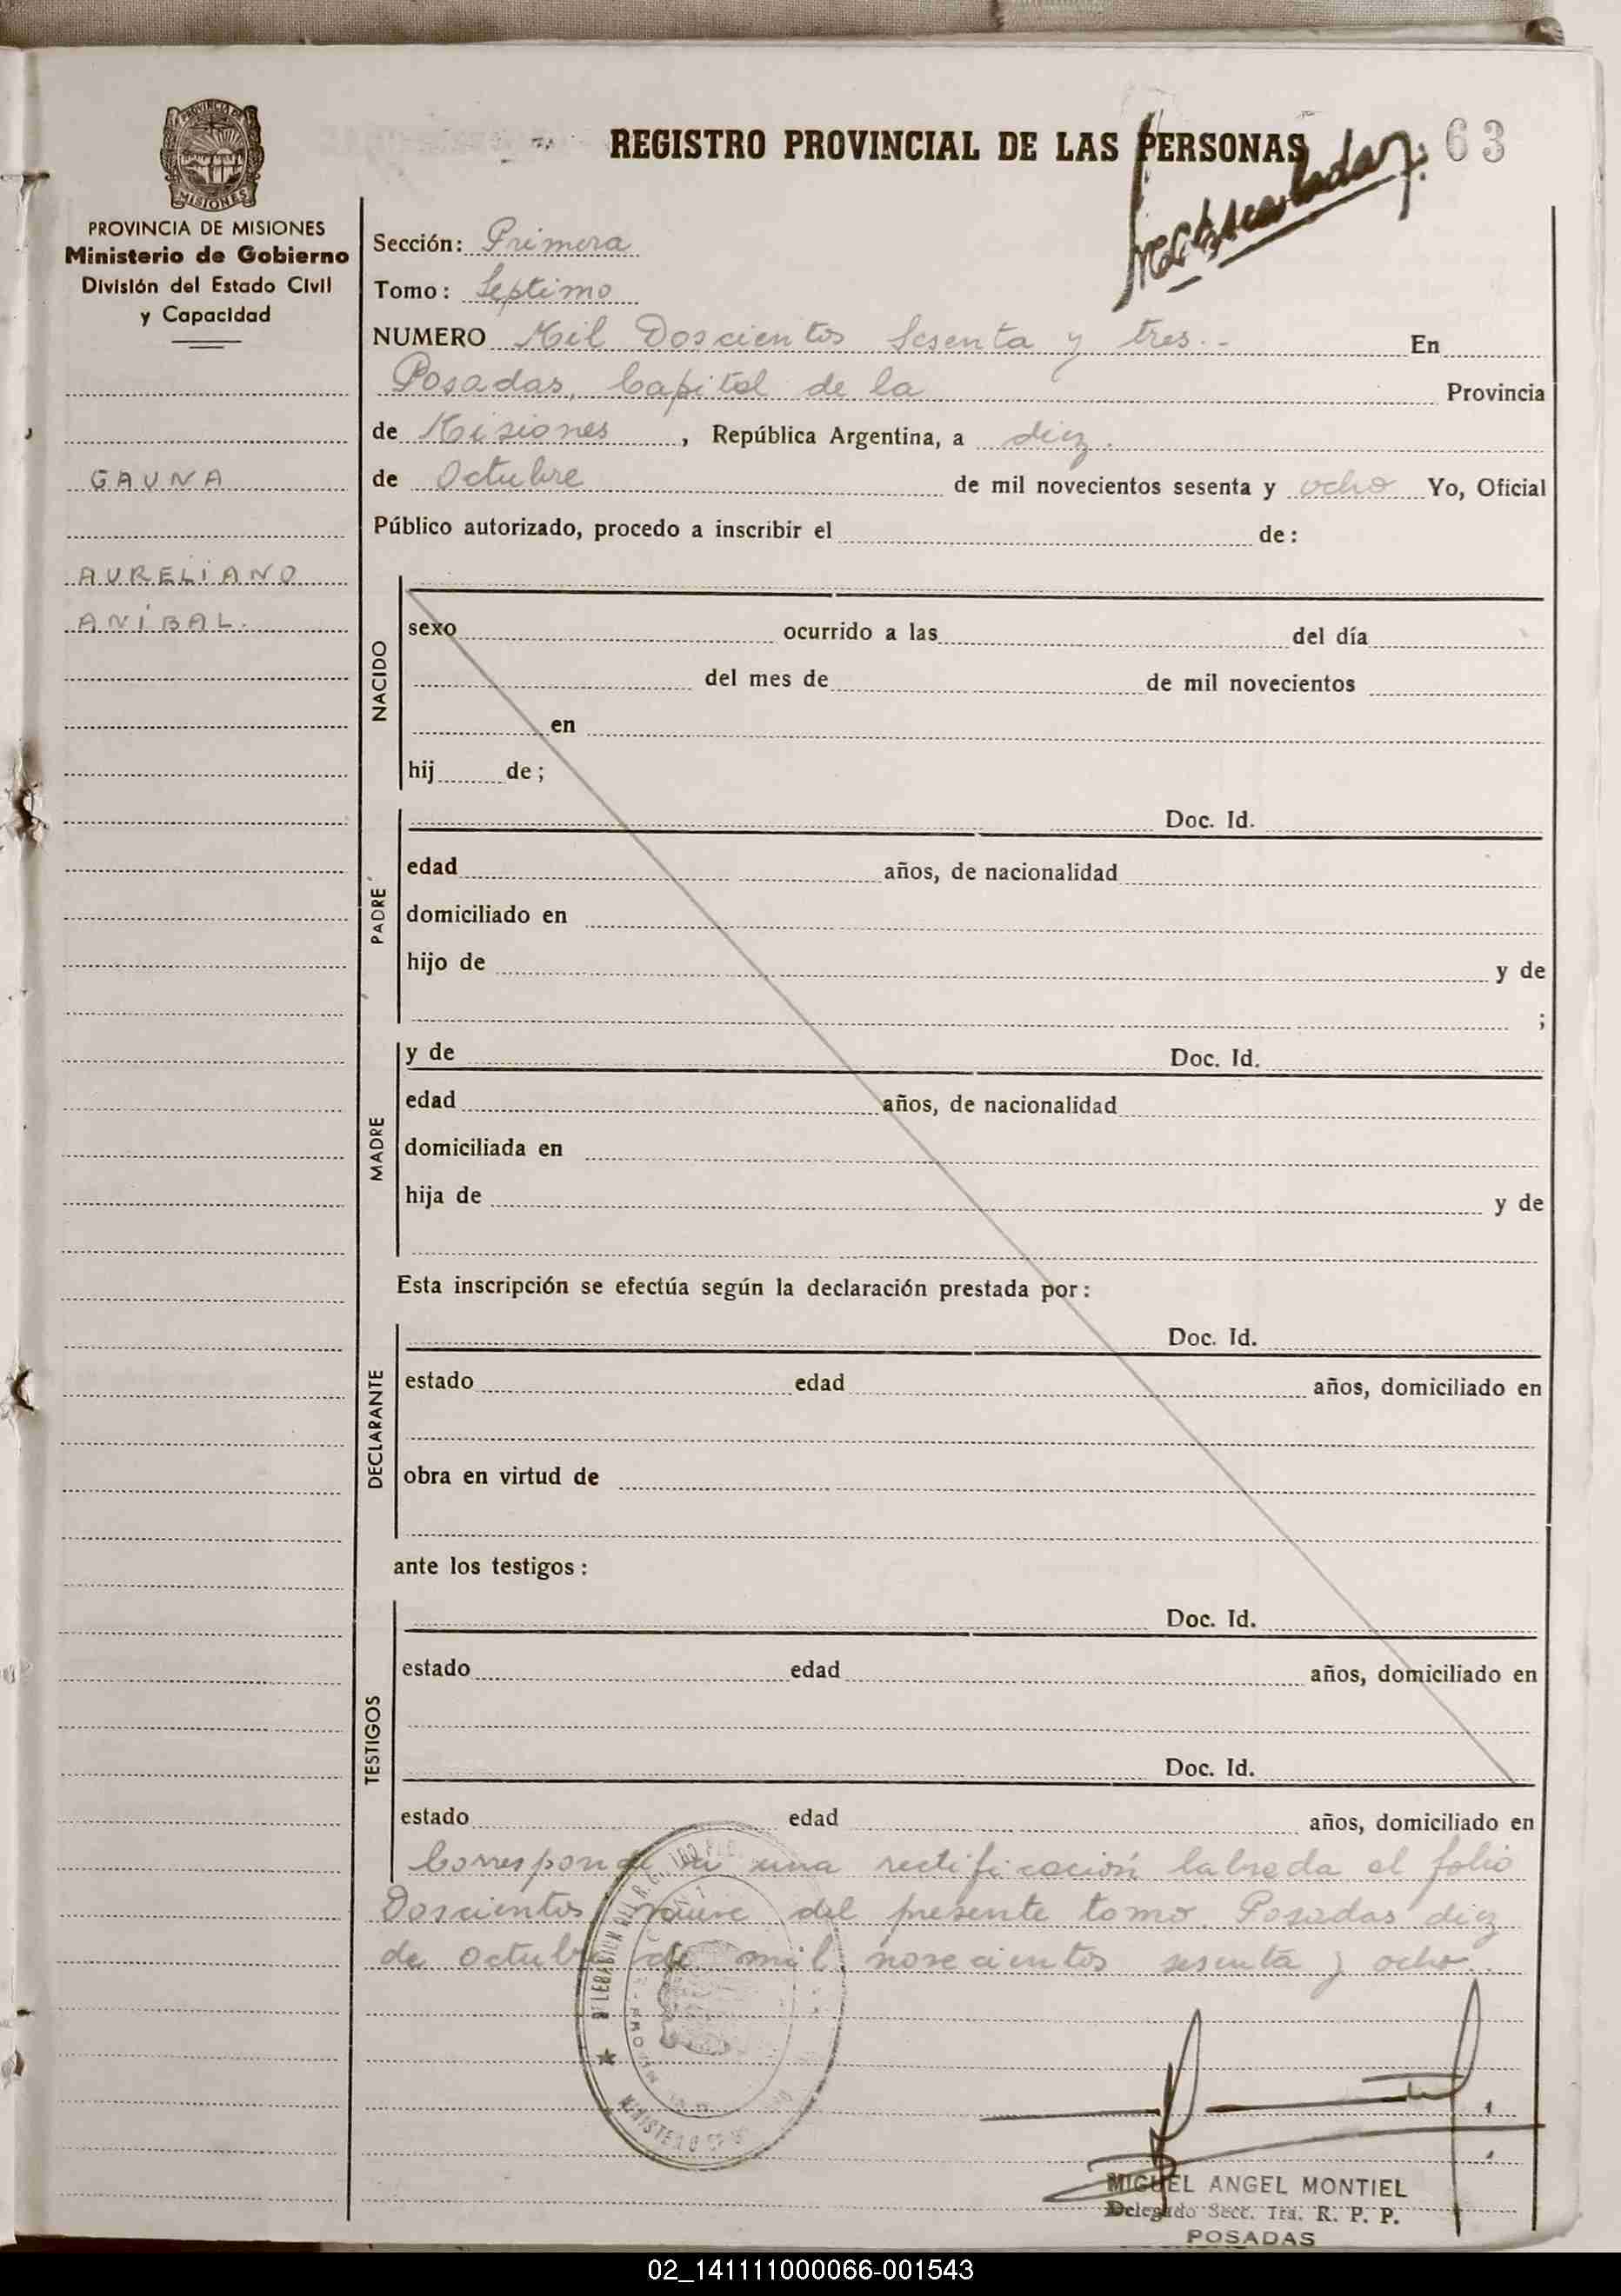 REGISTRO PROVINCIAL DE LAS PERSONAS
63
PROVINCIA DE
MISIONES
PROVINCIA DE MISIONES
Ministerio de Gobierno
División del Estado Civil
y Capacidad
GAUNA
AURELIANO
ANÍBAL.
Sección: Primera
Tomo: Septimo
NUMERO Mil Doscientos Sesenta y tres.- En
Posadas, Capital de la Provincia
de Misiones, República Argentina, a diez.
de Octubre de mil novecientos sesenta y ocho Yo, Oficial
Público autorizado, procedo a inscribir el de:
NACIDO
sexo ocurrido a las del día
del mes de de mil novecientos
en
hij de;
PADRE
Doc. Id.
edad años, de nacionalidad
domiciliado en
hijo de y de
;
MADRE
y de Doc. Id.
edad años, de nacionalidad
domiciliada en
hija de y de
Esta inscripción se efectúa según la declaración prestada por:
DECLARANTE
Doc. Id.
estado edad años, domiciliado en
obra en virtud de
ante los testigos:
TESTIGOS
Doc. Id.
estado edad años, domiciliado en
Doc. Id.
estado edad años, domiciliado en
Corresponde a una rectificación labrada al folio
Doscientos nueve del presente tomo. Posadas diez
de octubre de mil novecientos sesenta y ocho.
MIGUEL ANGEL MONTIEL
Delegado Secc. 1ra. R. P. P.
POSADAS
02_141111000066-001543